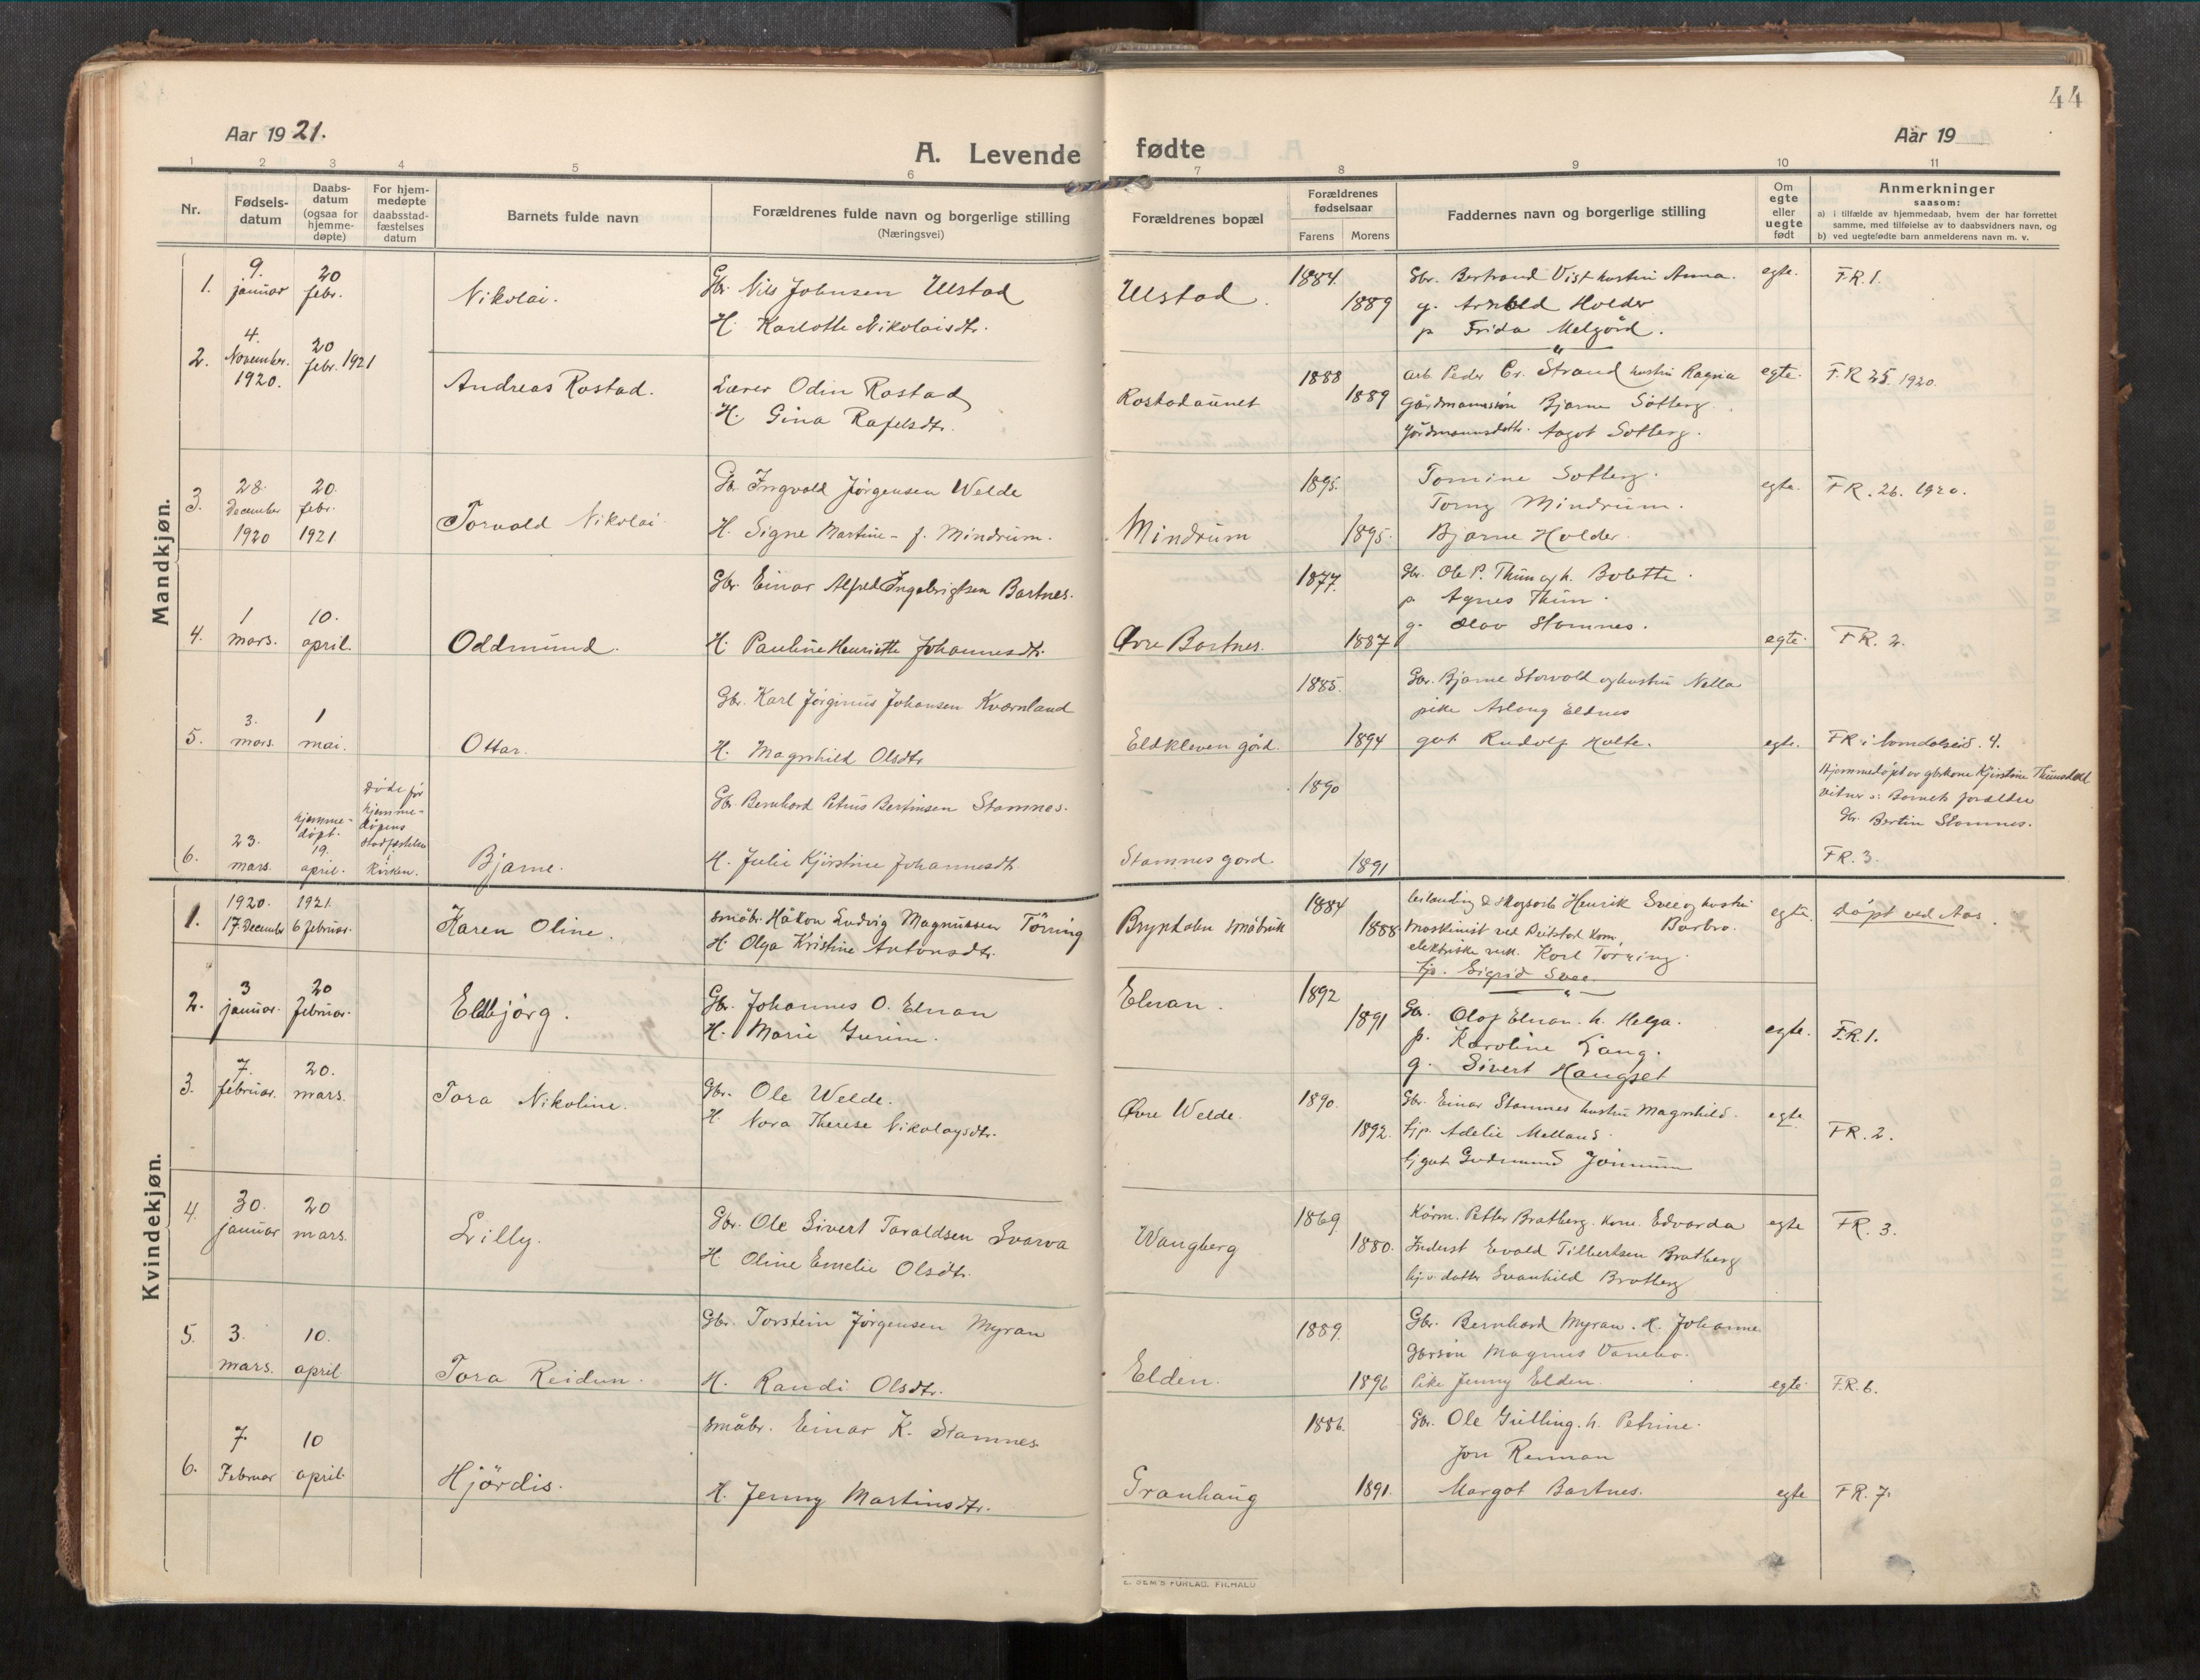 44
Aar 1921.
A. Levende fødte
Aar 19
1 2 3 4 5 6 7 8 9 10 11
Nr.
Fødsels-
datum
Daabs-
datum
(ogsaa for
hjemme-
døpte)
For hjem-
medøpte
daabsstad-
fæstelses
datum
Barnets fulde navn
Forældrenes fulde navn og borgerlige stilling
(Næringsvei)
Forældrenes bopæl
Forældrenes
fødselsaar
Farens Morens
Faddernes navn og borgerlige stilling
Om
egte
eller
uegte
født
Anmerkninger
saasom:
a) i tilfælde av hjemmedaab, hvem der har forrettet
samme, med tilføielse av to daabsvidners navn, og
b) ved uegtefødte barn anmelderens navn m. v.
Mandkjøn.
1.
9.
januar
20
febr.
Nikolai.
Gbr. Nils Johnsen Ulstad
H. Karlotte Nikolaisdtr.
Ulstad.
1884.
1889
Gbr. Bertrand Vist hustru Anna.
g. Arnold Holder
p. Frida Melgård.
egte.
F.R 1.
2.
4.
November.
1920.
20
febr. 1921
Andreas Rostad.
Lærer Odin Rostad
H. Gina Rafelsdtr.
Rostadaunet
1888
1889
Arb. Peder Cr. Strand hustru Ragna
Gårdmannssøn Bjarne Sotberg.
Gårdmannsdattr. Aagot Sotberg.
egte.
F.R 25. 1920.
3.
28.
december
1920
20.
febr.
1921
Torvald Nikolai
Gbr. Ingvald Jørgensen Welde
H. Signe Martine - f. Mindrum.
Mindrum
1895.
1895.
Tomine Sotberg.
Torny Mindrum.
Bjarne Holder.
egte.
F.R. 26. 1920.
4.
1
mars.
10.
april.
Oddmund.
Gbr. Einar Alfred Ingebrigtsen Bartnes.
H. Pauline Henriette Johannesdtr.
Øvre Bartnes.
1877.
1887
Gbr. Ole P. Thun og h. Bolette.
p. Agnes Thun.
g. Olav Stamnes.
egte.
F.R. 2.
5.
3.
mars.
1
mai.
Ottar.
Gbr. Karl Jørginus Johansen Kvernland
H. Magnhild Olsdtr
Eldkleven gård.
1885.
1894
Gbr. Bjarne Storvold og hustru Nella
pike Aslaug Eldnes
gut Rudolf Holte.
egte.
FR i Namdalseid. 4.
6.
23.
mars.
hjemme-
døpt.
19.
april.
Døde før
hjemme-
dåpens
stadfestelse
i
Kirken.
Bjarne.
Gbr. Bernhard Petrus Bertinsen Stamnes.
H. Julie Kjirstine Johannesdtr.
Stamnes gård.
1890
1891
Hjemmedøpt av gbrkone Kjirstine Thunsdal
vitner: Barnets foreldre
Gbr. Bertin Stamnes.
FR. 3.
Kvindekjøn.
1.
1920.
17 December
1921.
6 februar.
Karen Oline.
Småbr. Håkon Ludvig Magnussen Tørring
H. Olga Kristine Antonsdtr.
Bryndalen småbruk
1884
1888
Leilending & skogsarb Henrik Svee og hustru
Barbro.
maskinist ved Beitstad kom.
elektriske verk. Karl Tørring.
Tjp. Sigrid Svee
egte.
Døpt ved Aas.
2.
3
januar.
20
februar.
Eldbjørg.
Gbr. Johannes O. Elnan
H. Marie Gurine.
Elnan.
1892
1891
Gbr. Olaf Elnan. h. Helga.
p. Karoline Lang.
g. Sivert Haugset
egte.
F.R 1.
3.
7.
februar.
20.
mars.
Tora Nikoline.
Gbr. Ole Welde.
H. Nora Therese Nikolaysdtr.
Øvre Welde.
1890.
1892.
Gbr. Einar Stamnes hustru Magnhild.
tjp. Adelie Melland.
tj gut Gudmund Jønnum
egte
FR. 2.
4.
30.
januar
20
mars.
Lilly.
Gbr. Ole Sivert Taraldsen Svarva
H. Oline Emelie Olsdtr.
Wangberg
1869
1880.
Kårm. Petter Bratberg. kone. Edvarda
Indust Evald Tilbertsen Bratberg
hj.v. datter Svanhild Bratberg
egte
FR. 3.
5.
3.
mars.
10.
april
Tora Reidun.
Gbr. Torstein Jørgensen Myran
H. Randi Olsdtr.
Elden.
1889.
1896
Gbr. Bernhard Myran. H. Johanne.
Gbrsøn Magnus Vanebo.
Pike Jenny Elden.
egte
F.R. 6.
6.
7.
Februar
10
april
Hjördis.
Småbr. Einar K. Stamnes
H. Jenny Martinsdtr.
Granhaug
1886.
1891.
Gbr. Ole Gulling. h. Petrine.
Jon Rennan
Margot Bartnes.
egte
FR. 7.
E. SEM'S FORLAG, FR.HALD